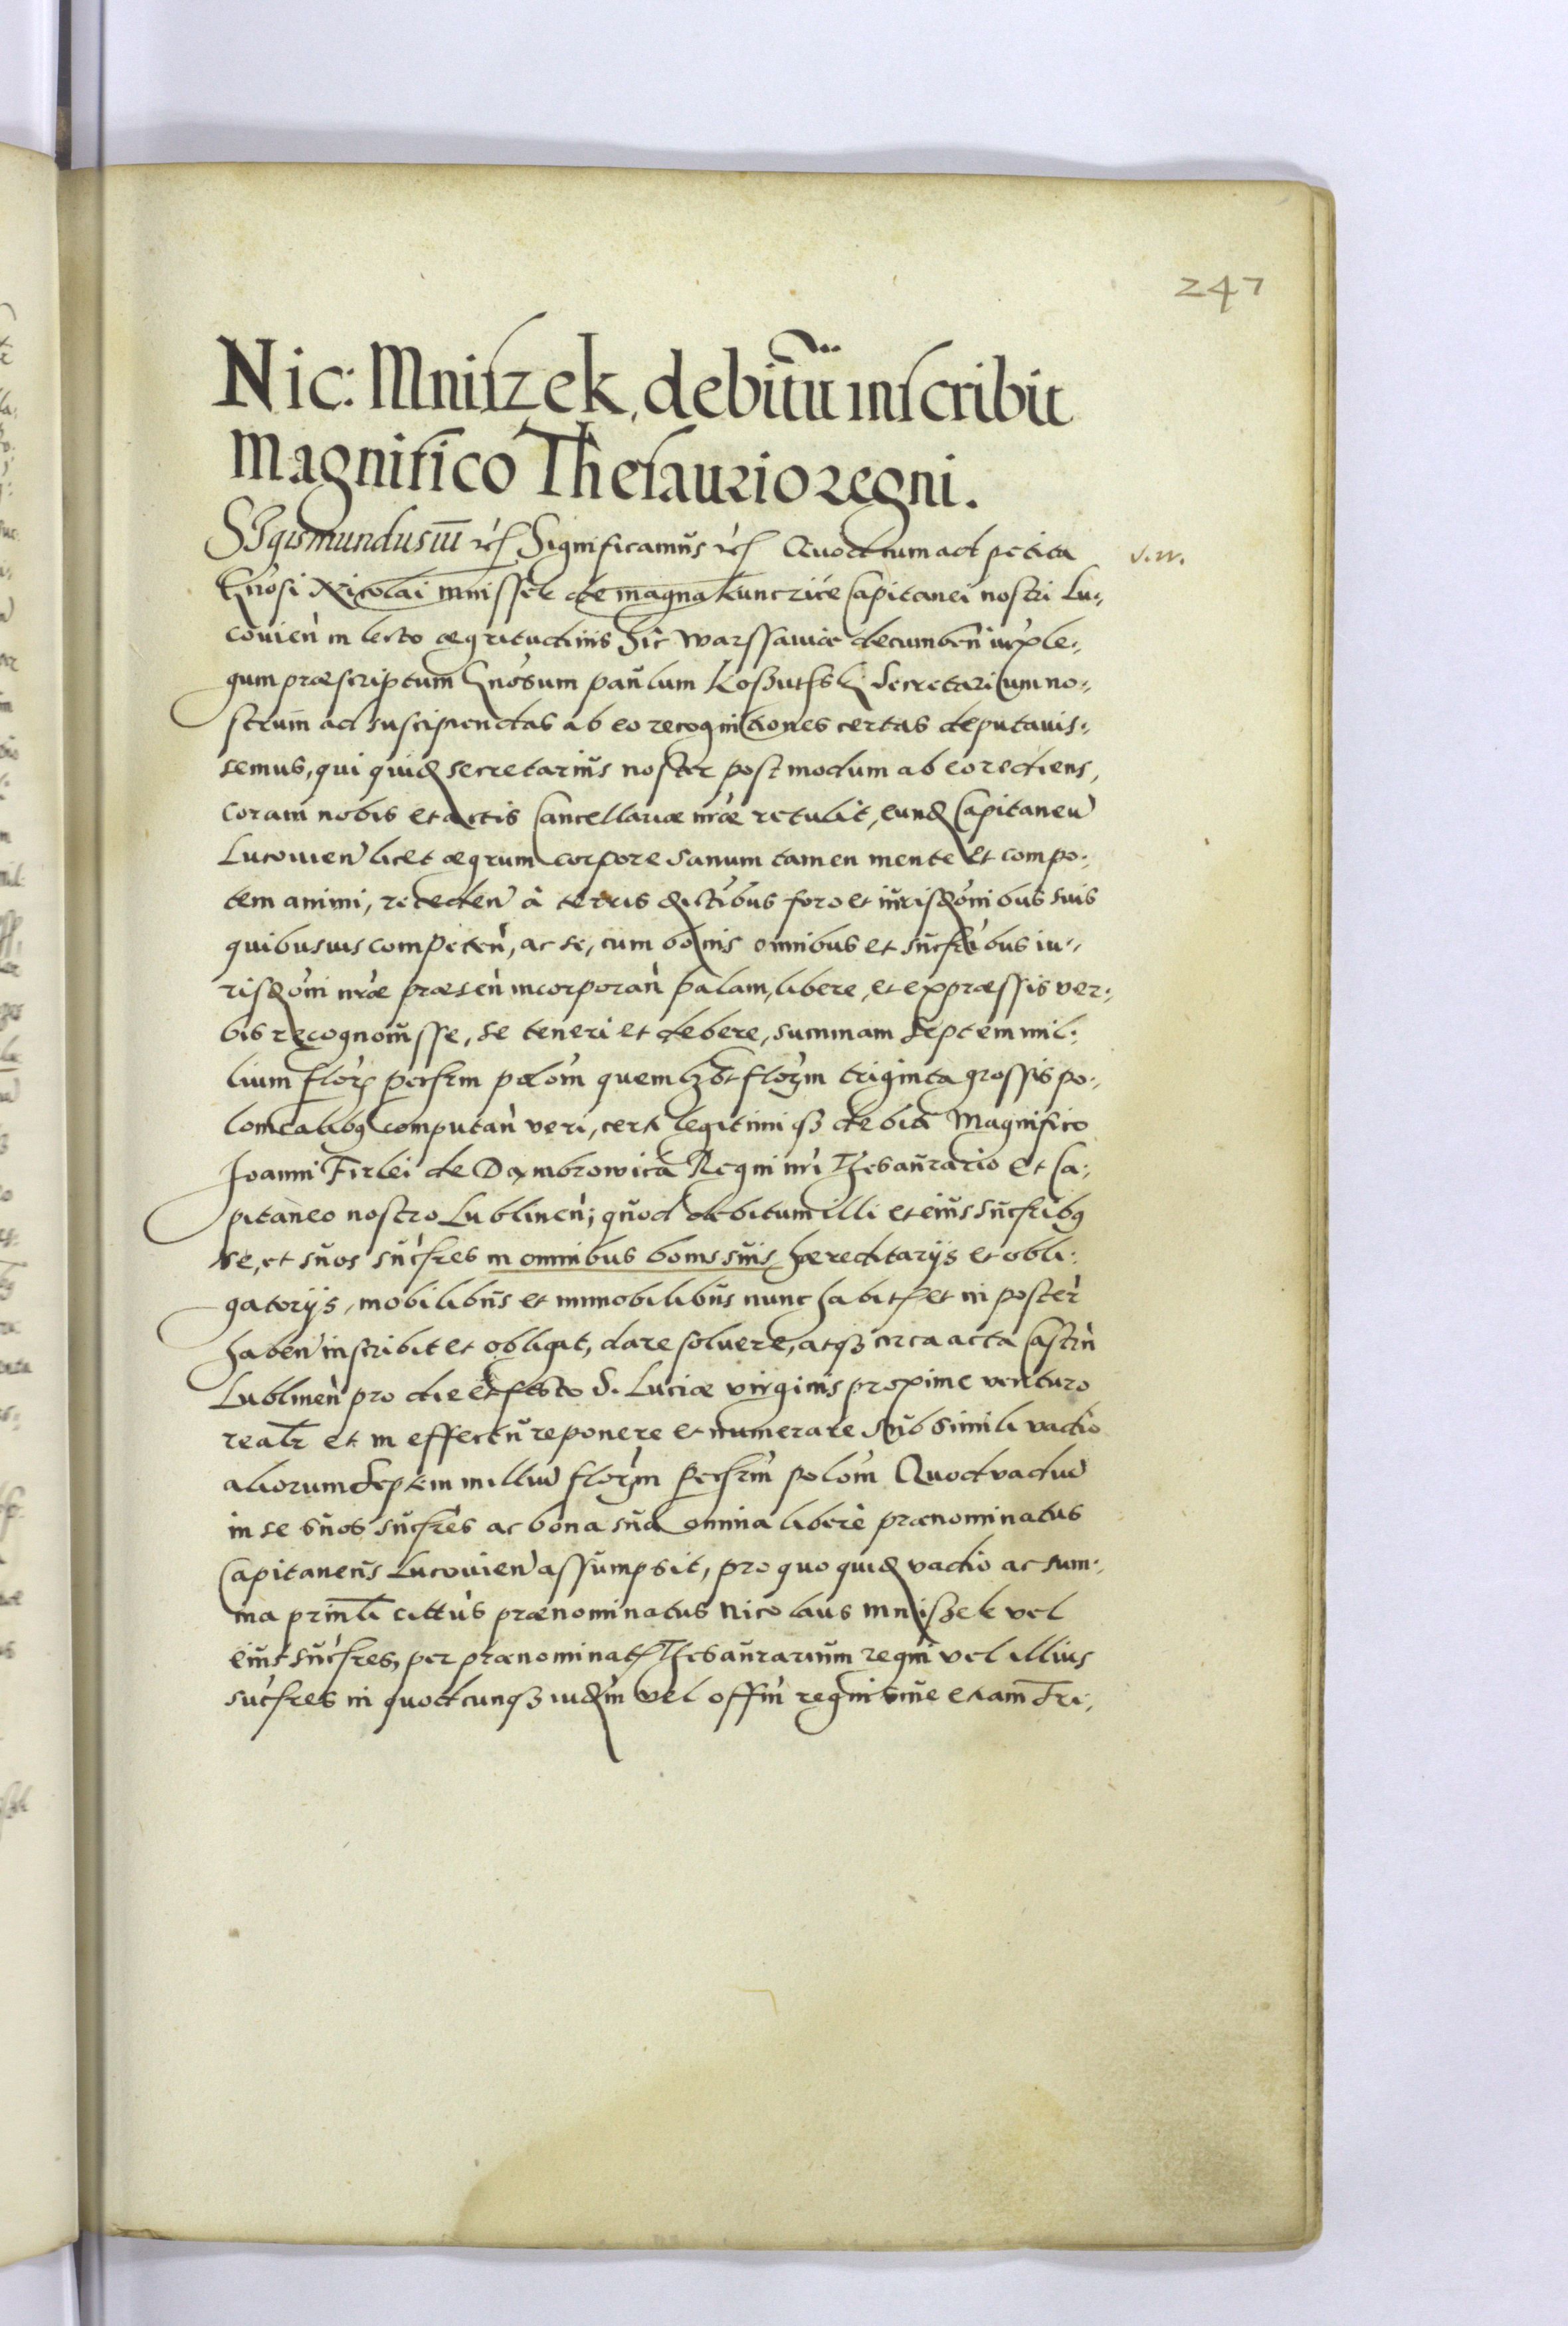 247
Nic: Mniszek, debitũ inscribit
Magnifico Thesaurio regni.
SIgismundus iii rc̃ Significamus rc̃ Quod cum ad petita
Gn̄osi Nicolai Mnissek de magna kunczicze Capitanei nostri Lu-
couień in lecto ægritudinis hic Warssauiæ decumbeń iuxta le-
gum præscriptum Gn̄osum Paulum Koszutski Secretarium no-
strum ad suscipiendas ab eo recognitiones certas deputauis-
semus, qui quid secretarius noster postmodum ab eo rediens,
coram nobis et actis Cancellariæ nr̃æ retulit, eund Capitaneũ
Lucouień licet ægrum corpore sanum tamen mente et compo-
tem animi, recedeń à terris distr̃ibus foro et iurisdõnibus suis
quibusuis competeń, ac se, cum bonis omnibus et succr̃ibus iu-
risdõni nr̃æ præseń incorporań palam, libere, et expræssis ver-
bis recognouisse, se teneri et debere, summam Septem mil-
lium flor̃ pecũrm polõm quemlibt flor̃m triginta grossis po-
lonicalibq computań veri, certi legitimi qз debiti Magnifico
Joanni Firlei de Dambrowica Regni nr̃i Thesaurario et Ca-
pitaneo nostro Lublineń; quod debitum illi et eius succr̃ibq
se, et suos succr̃es in omnibus bonis suis hæreditarijs et obli-
gatorijs, mobilibus et immobilibus nunc habit et in poster̃
habeń inscribit et obligat, dare soluere, atqз circa acta Castrń
Lublineń pro die et festo S. Luciæ virginis proxime venturo
realr̃ et in effectu reponere et numerare sub simili vadio
aliorum Septem milliũ flor̃m pecũrm polõm Quod vadiũ
in se suos succr̃es ac bona sua omnia liberè prænominatus
Capitaneus Lucouień assumpsit, pro quo quid vadio ac sum-
ma prin̄li citt̃us prænominatus Nicolaus Mniszek vel
eius succr̃es, per prænominat Thesaurarium regni vel illius
succr̃es in quodcunqз iud̃m vel offm̃ regni siue etiam Tri-